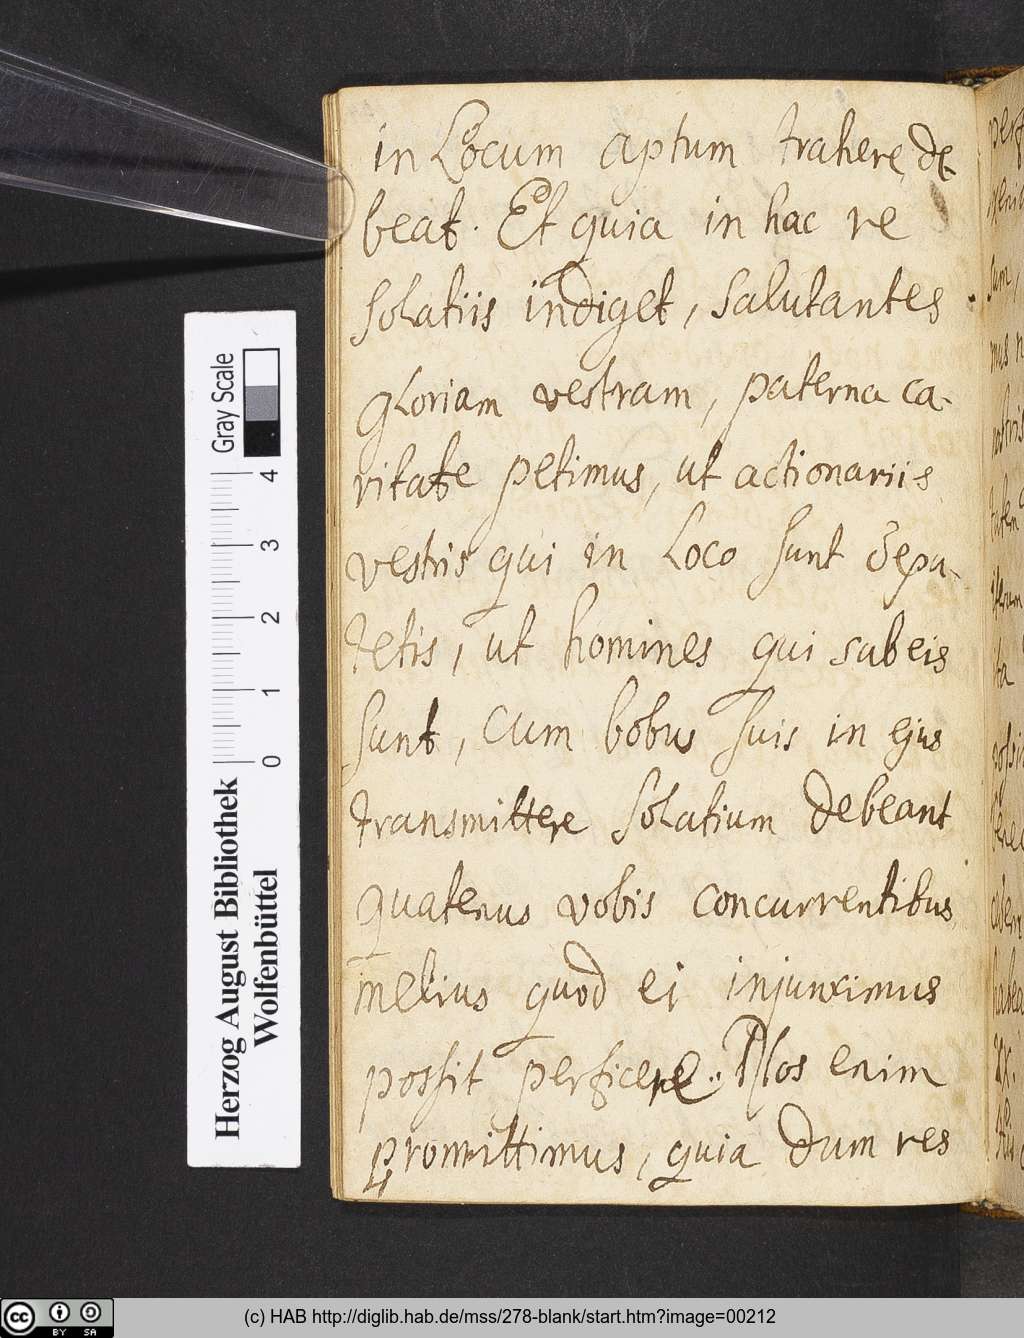 in Locum aptum trahere de-
beat. Et quia in hac re
solatiis indiget, salutantes
gloriam vestram, paterna ca-
ritate petimus, ut actionariis
vestris qui in Loco sunt depu-
tetis, ut homines qui sub eis
sunt, cum bobus suis in ejus
transmittere solatium debeant
quatenus vobis concurrentibus,
melius quod ei injunximus
possit perficere. Nos enim
promittimus, quia dum res
Gray Scale
4
3
2
1
0
Herzog August Bibliothek
Wolfenbüttel
cc BY SA
(c) HAB http://diglib.hab.de/mss/278-blank/start.htm?image=00212